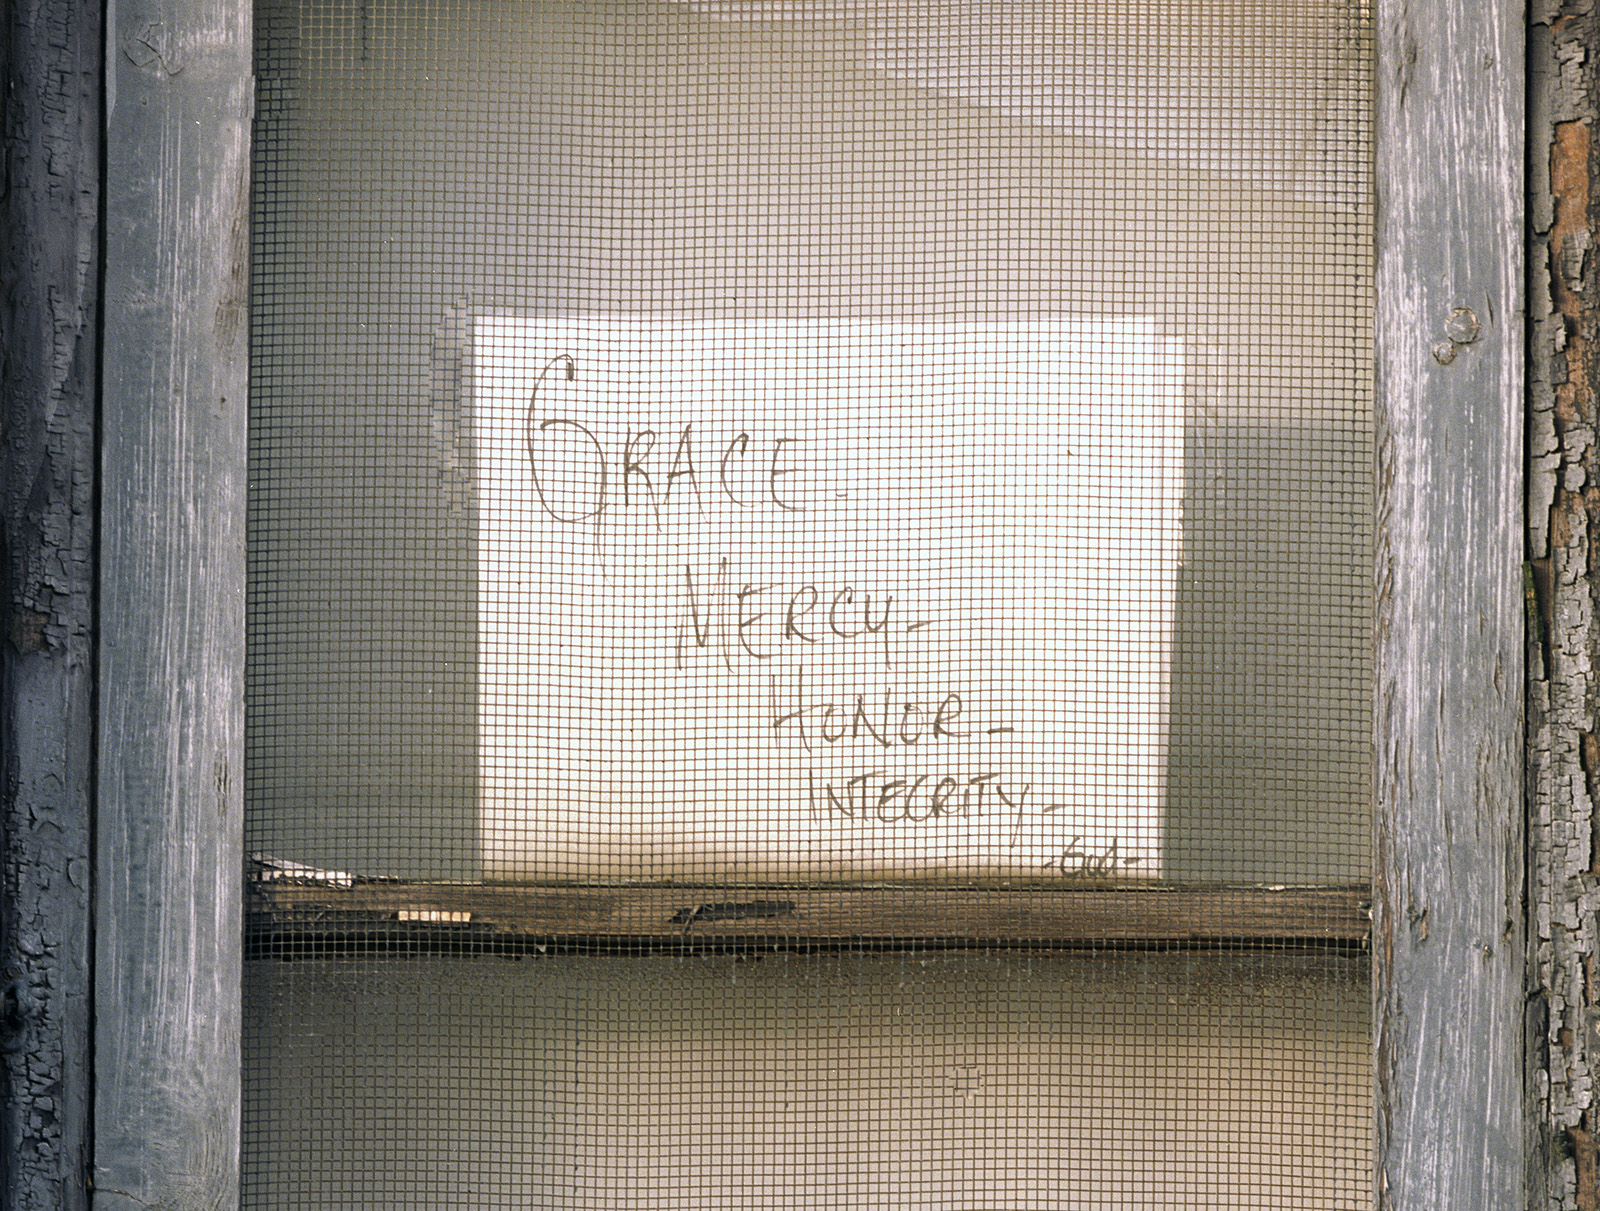 GRACE-
MERCY-
HONOR-
INTEGRITY-
-God-